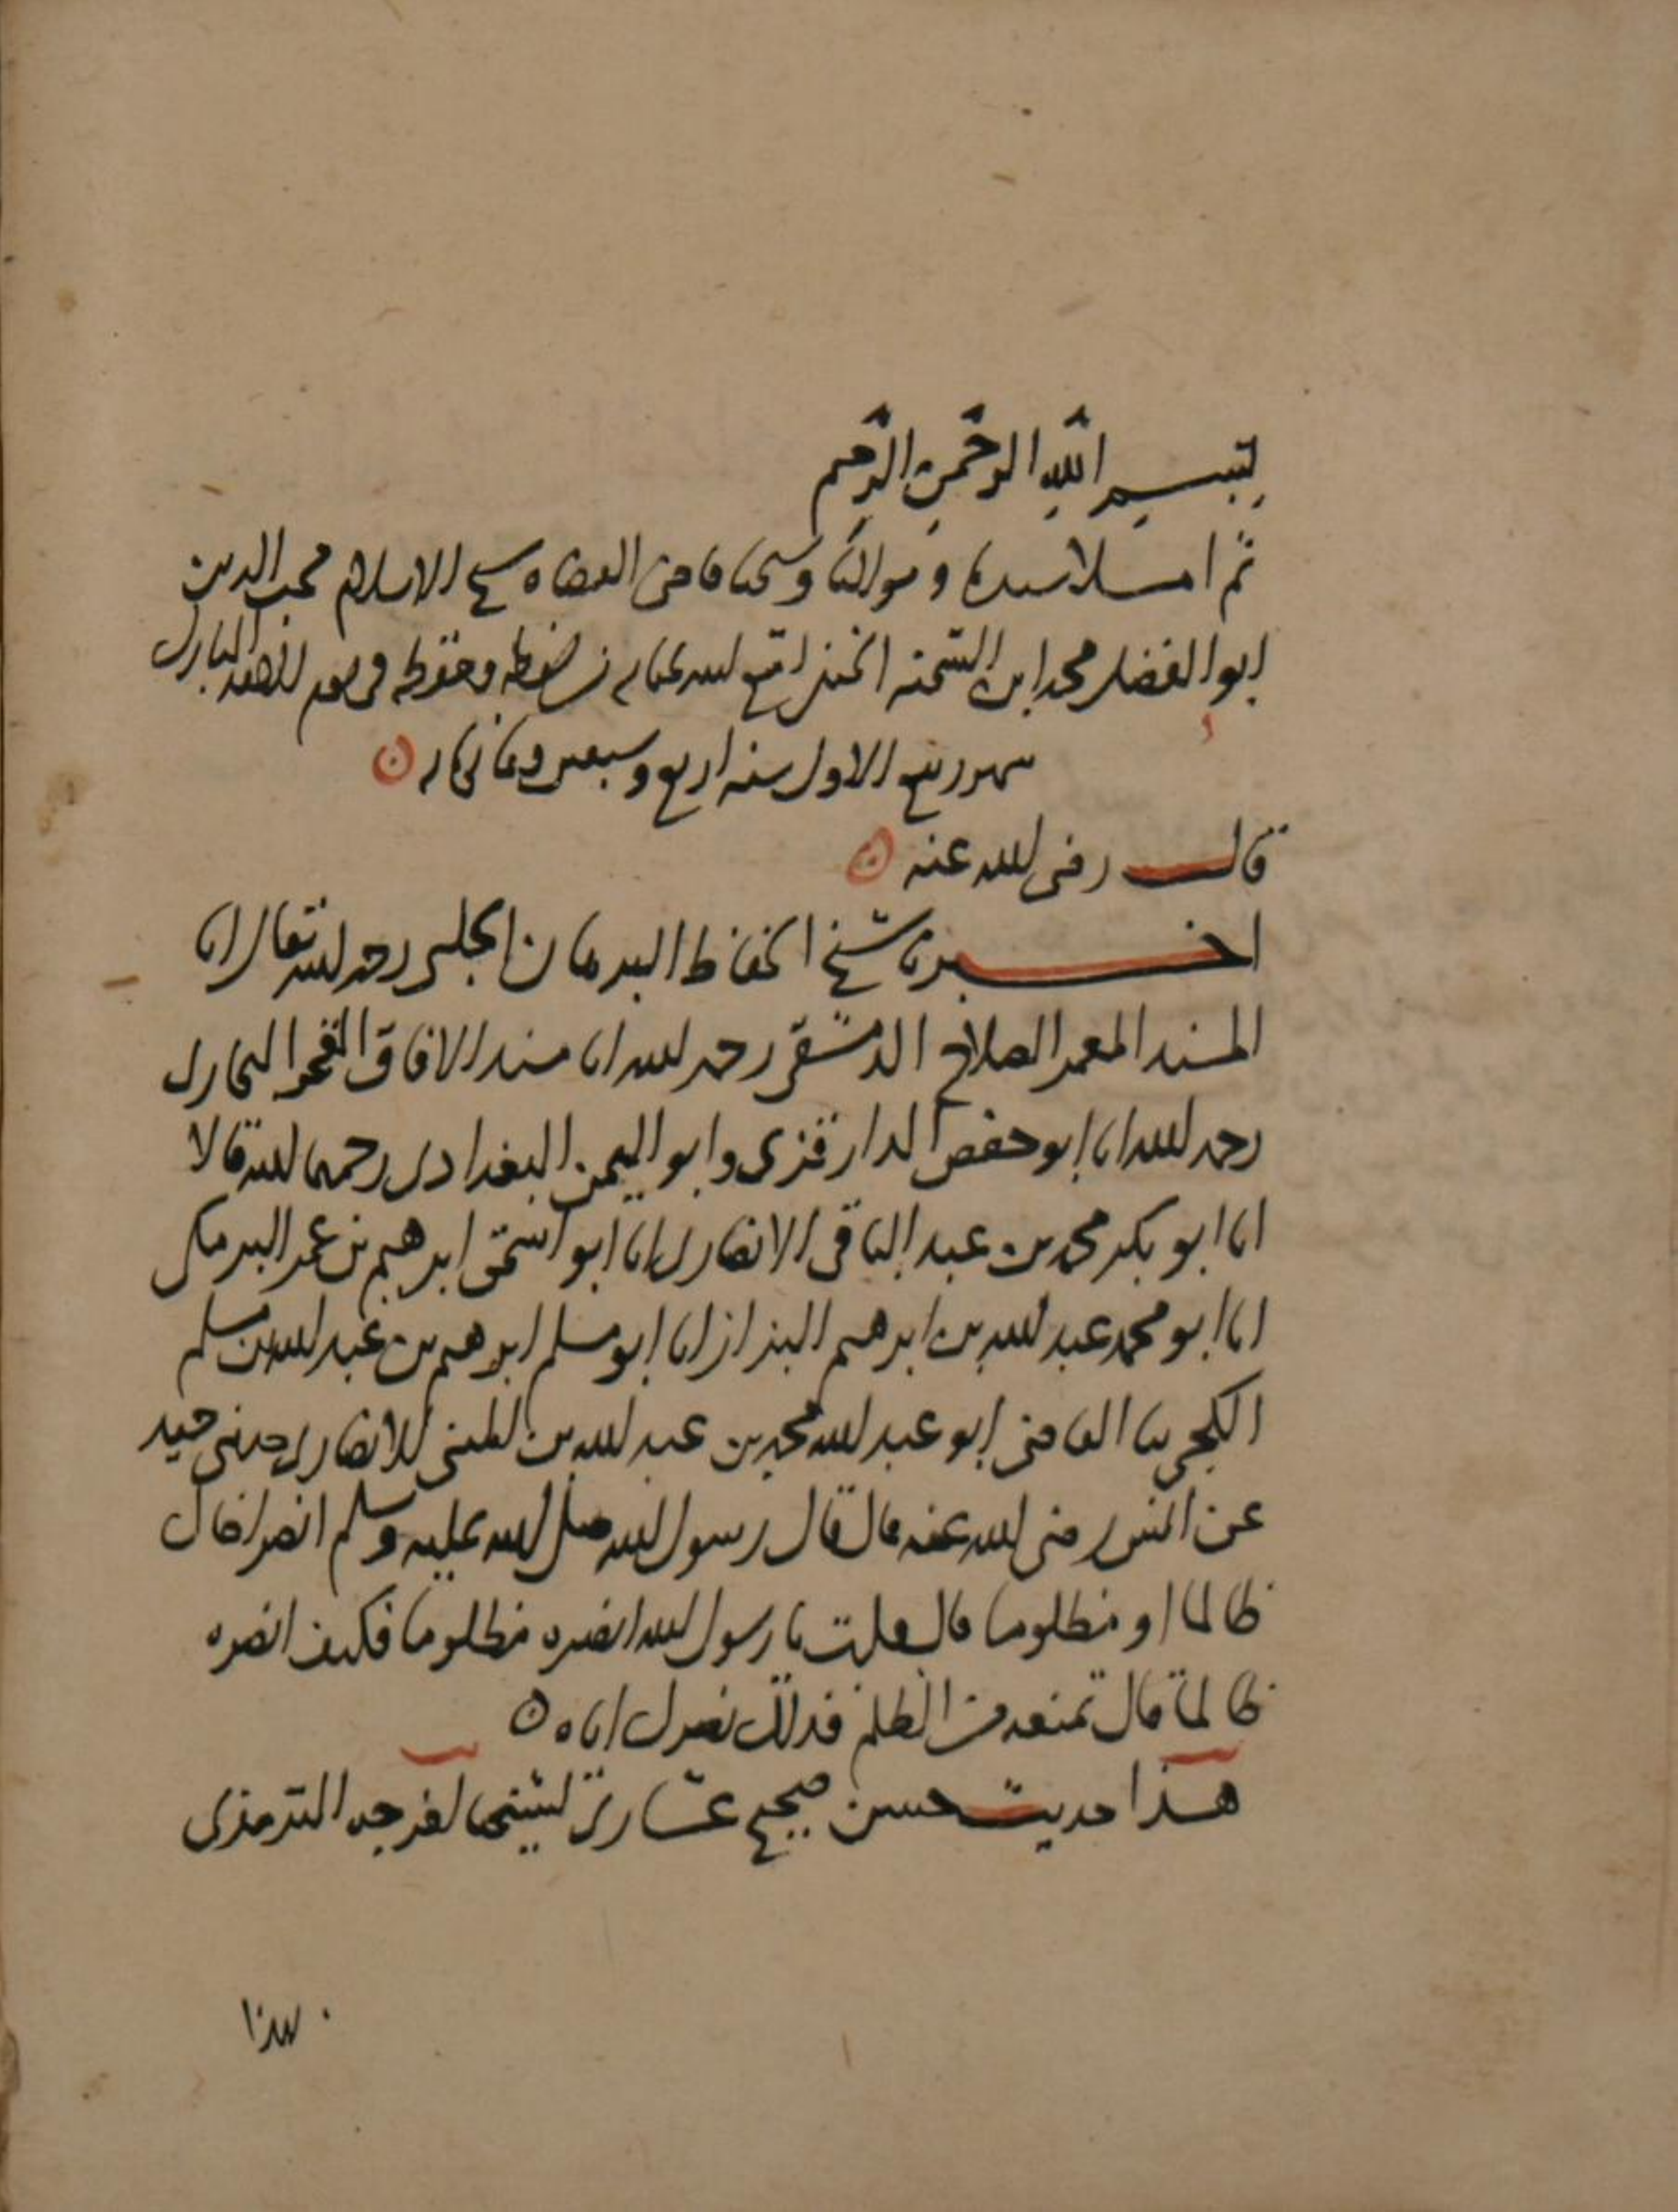 بسم الله الرحمن الرحيم
ثم املا سيدنا ومولانا وشيخنا قاضى القضاه شيخ الاسلام محب الدين
ابو الفضل محمد ابن الشحنه الحنفى امتع الله بحياته فى يوم المبارك
شهر ربيع الاول سنه اربع وسبعين وثمانمايه
قال رضى الله عنه
اخبرنا شيخ الحفاظ البرهان الحلبى رحمه الله تعالى انا
المسند المعمر الصلاح الدمشقى رحمه الله انا مسند الافاق الفخر البخارى
رحمه الله انا ابو حفص الدارقزى وابو اليمن البغدادى رحمهما الله قالا
انا ابو بكر محمد بن عبد الباقى الانصارى انا ابو اسحق ابرهيم بن عمر البرمكى
انا ابو محمد عبد الله بن ابرهيم البزاز انا ابو مسلم ابرهيم بن عبد الله بن مسلم
الكجى ثنا القاضى ابو عبد الله محمد بن عبد الله بن المثنى الانصارى حدثنى حميد
عن انس رضى الله عنه قال قال رسول الله صلى الله عليه وسلم انصر اخاك
ظالما او مظلوما قال قلت يا رسول الله انصره مظلوما فكيف انصره
ظالما قال تمنعه من الظلم فذلك نصرك اياه
هذا حديث حسن صحيح عشارى لشيخنا اخرجه الترمذى
هذا